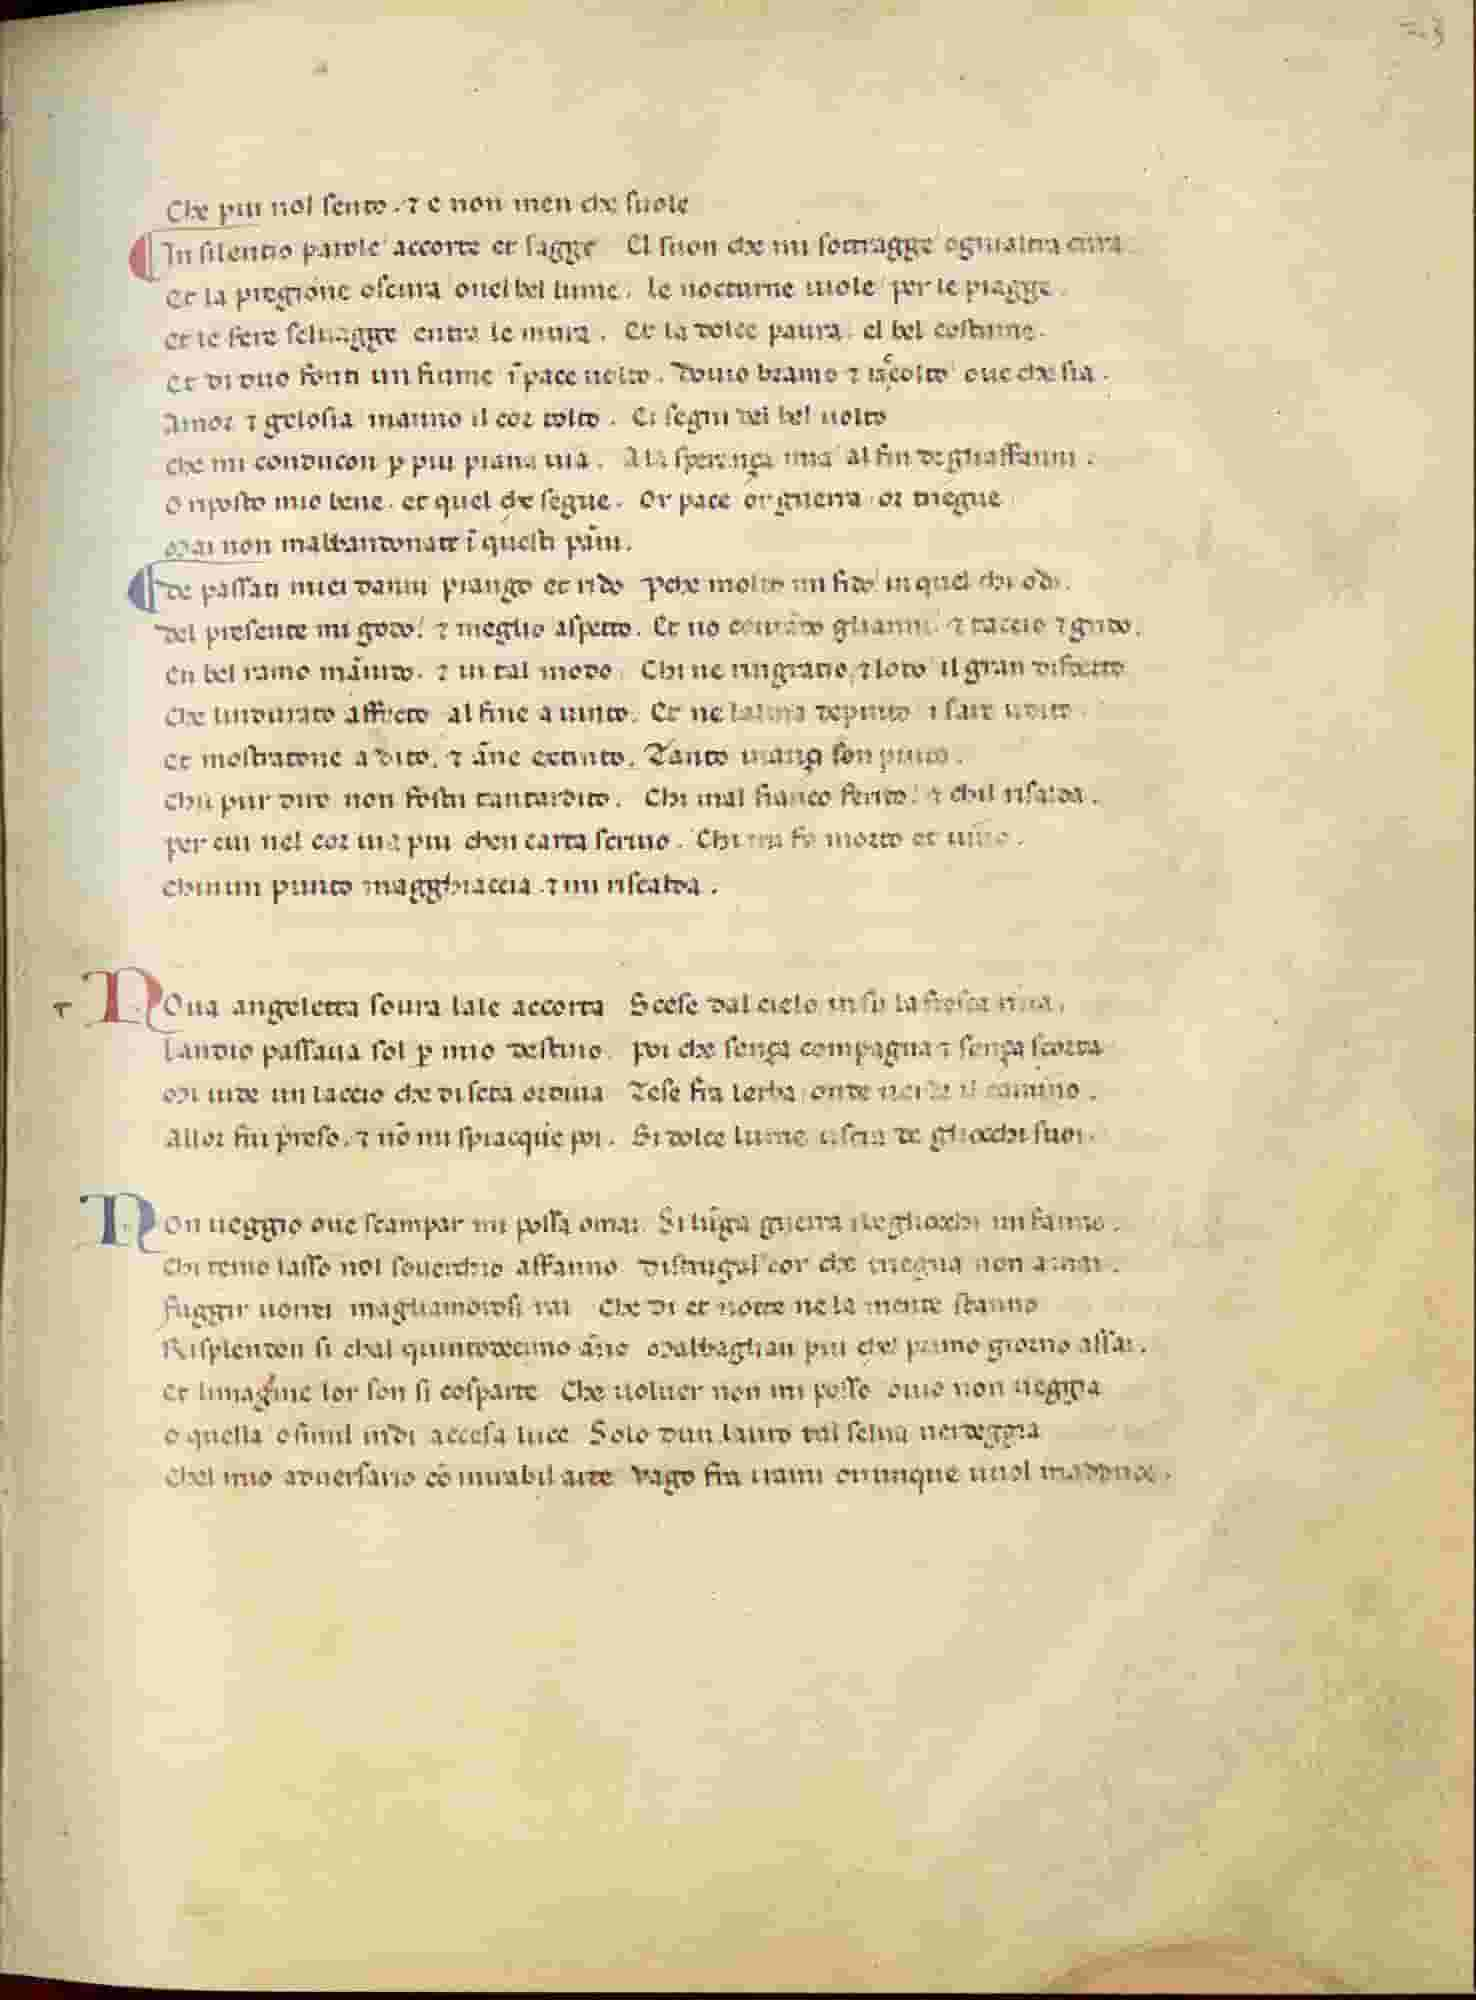 Che piu nol sento . ⁊ e non men che suole
In silentio parole accorte et sagge El suon che mi sottragge ogni altra cura
Et la pregione oscura ouel bel lume . le nocturne uiole per le piagge .
Et le fere seluagge entra le mura . Et la dolce paura . el bel costume .
Et di duo fonti un fiume ī pace uolto . Douio bramo ⁊ racolto oue che sia .
Amor ⁊ gelosia manno il cor tolto . Ei segni del bel uolto
che mi conducon ꝑ piu piana uia . A la sperança mia al fin degliaffanni .
O riposto mio bene . et quel che segue . Or pace or guerra or triegue
Mai non mabbandonate ī questi pāni .
De passati miei danni piango et rido Perche molto mi fido in quel chi odo .
Del presente mi godo . ⁊ meglio aspetto . Et uo contando glianni . ⁊ taccio ⁊ grido .
En bel ramo mānido . ⁊ in tal modo Chi ne ringratio ⁊ lodo il gran disdetto
Che lindurato affecto al fine a uinto . Et ne lalma depinto i sare udito .
Et mostratone a dito . ⁊ āne extinto . Tanto inanzi son pinto .
Chil pur diro non fostu tantardito . Chi mal fianco ferito . ⁊ chil risalda .
per cui nel cor uia piu chen carta scriuo . Chi mi fa morto et uiuo .
Chinun punto magghiaccia . ⁊ mi riscalda .
NOua angeletta soura lale accorta Scese dal cielo in su la fresca riua .
Landio passaua sol ꝑ mio destino . poi che sença compagna ⁊ sença scorta
Mi uide un laccio che di seta ordiua Tese fra lerba onde uerde il camino .
Allor fui preso . ⁊ nō mi spiacque poi . Si dolce lume uscia de gliocchi suoi .
NOn ueggio oue scampar mi possa omai . Si lūga guerra ibegliocchi mi fanno .
Chi temo lasso nol souerchio affanno Distrugal cor che triegua non a mai .
Fuggir uorrei magliamorosi rai Che di et notte ne la mente stanno
Risplendon si chal quintodecimo āno Mabbaglian piu chel primo giorno assai .
Et limagine lor son si cosparte Che uoluer non mi posso ouio non ueggia
O quella o simil indi accesa luce Solo dun lauro tal selua uerdeggia
Chel mio aduersario cō mirabil arte Vago fra i rami ouunque uuol madduce .